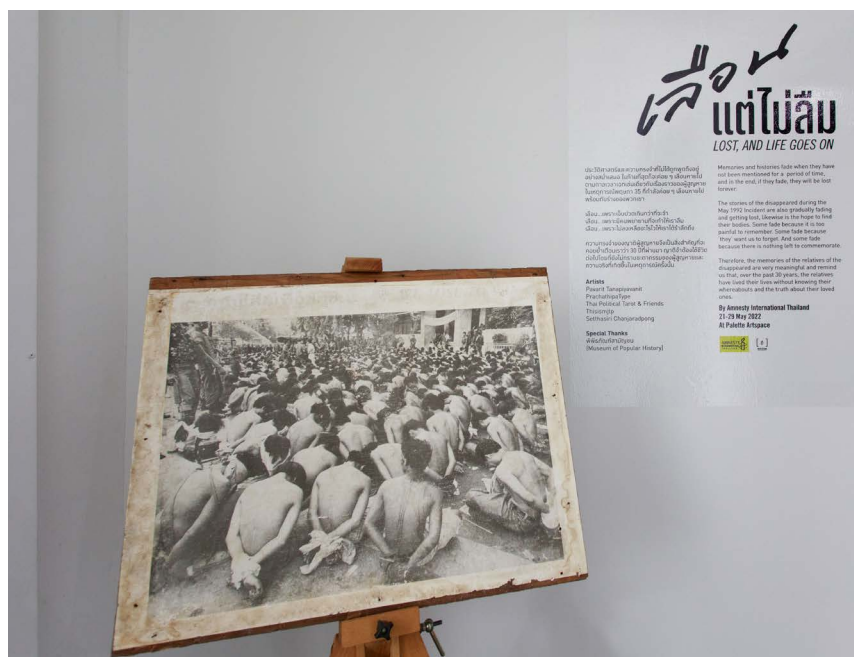 เลือน
แต่ไม่ลืม
LOST, AND LIFE GOES ON
ประวัติศาสตร์และความทรงจำที่ไม่ได้ถูกพูดถึงอยู่
อย่างสม่ำเสมอ ในท้ายที่สุดก็จะค่อย ๆ เลือนหายไป
ตามกาลเวลาเฉกเช่นเดียวกับเรื่องราวของผู้สูญหาย
ในเหตุการณ์พฤษภา 35 ที่กำลังค่อย ๆ เลือนหายไป
พร้อมกับร่างของพวกเขา
เลือน.. เพราะเป็นปวดเกินกว่าที่จะจำ
เลือน.. เพราะมีคนพยายามที่จะทำให้เราลืม
เลือน.. เพราะไม่หลงเหลืออะไรไว้ให้เราได้รำลึกถึง
ความทรงจำของญาติผู้สูญหายจึงเป็นสิ่งสำคัญที่จะ
คอยย้ำเตือนเราว่า 30 ปีที่ผ่านมา ญาติจำต้องใช้ชีวิต
ต่อไปโดยที่ยังไม่ทราบชะตากรรมของผู้สูญหายและ
ความจริงที่เกิดขึ้นในเหตุการณ์ครั้งนั้น
Artists
Pasarit Tanapiyavanit
PrachathipaType
Thai Political Tarot & Friends
Thisismjtp
Setthasiri Chanjaradpong
Special Thanks
พิพิธภัณฑ์สามัญชน
(Museum of Popular History)
Memories and histories fade when they have
not been mentioned for a period of time,
and in the end, if they fade, they will be lost
forever.
The stories of the disappeared during the
May 1992 Incident are also gradually fading
and getting lost, likewise is the hope to find
their bodies. Some fade because it is too
painful to remember. Some fade because
they want us to forget. And some fade
because there is nothing left to commemorate.
Therefore, the memories of the relatives of the
disappeared are very meaningful and remind
us that, over the past 30 years, the relatives
have lived their lives without knowing their
whereabouts and the truth about their loved
ones.
By Amnesty International Thailand
21-29 May 2022
At Palette Artspace